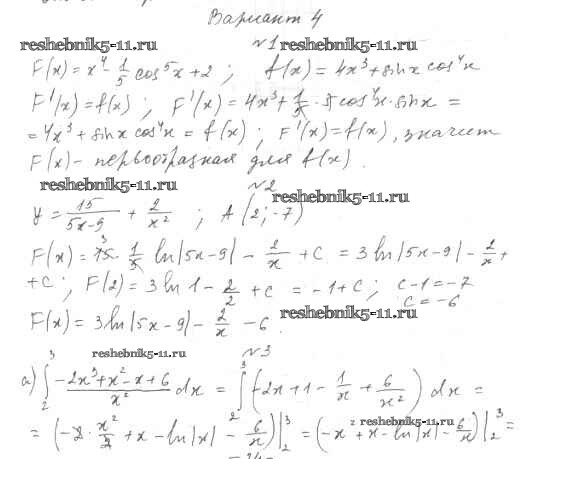 Вариант 4
reshebnik5-11.ru №1 reshebnik5-11.ru
F(x) = x⁴ - 1/5 cos⁵x + 2 ; f(x) = 4x³ + sin x cos⁴x
F'(x) = f(x) ; F'(x) = 4x³ + 1/5 · 5 cos⁴x · sin x =
= 4x³ + sin x cos⁴x = f(x) ; F'(x) = f(x), значит
F(x) - первообразная для f(x).
reshebnik5-11.ru №2 reshebnik5-11.ru
y = 15/(5x-9) + 2/x² ; A(2; -7)
F(x) = 15 · 1/5 ln|5x-9| - 2/x + C = 3 ln|5x-9| - 2/x +
+ C ; F(2) = 3 ln 1 - 2/2 + C = -1 + C ; C - 1 = -7
C = -6
F(x) = 3 ln|5x-9| - 2/x - 6. reshebnik5-11.ru
reshebnik5-11.ru №3
а) ∫₂³ (-2x³ + x² - x + 6)/x² dx = ∫₂³ (-2x + 1 - 1/x + 6/x²) dx =
= (-2 · x²/2 + x - ln|x| - 6/x)|₂³ = (-x² + x - ln|x| - 6/x)|₂³ =
reshebnik5-11.ru